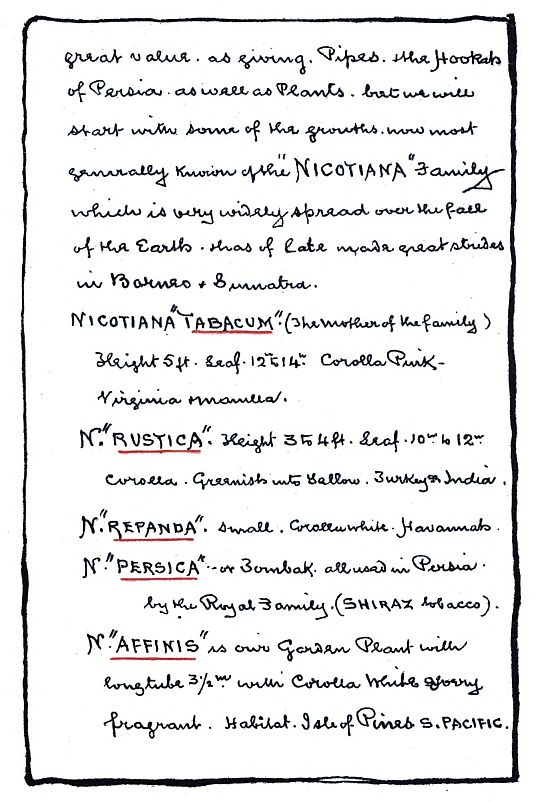 great value. as giving. Pipes. the Hookah
of Persia. as well as Plants. but we will
start with some of the growths. now most
generally known of the "NICOTIANA" Family
which is very widely spread over the face
of the Earth. & has of late made great strides
in Borneo & Sumatra.
NICOTIANA "TABACUM". (The Mother of the family)
Height 5 ft. Leaf. 12 to 14 in Corolla Pink-
Virginia & Manilla.
N. "RUSTICA". Height 3 to 4 ft. Leaf. 10 in to 12 in
Corolla. Greenish into Yellow. Turkey & India.
N. "REPANDA". Small. Corolla white. Havannah.
N. "PERSICA" - or Tombak. all used in Persia.
by the Royal Family. (SHIRAZ tobacco).
N. "AFFINIS" is our Garden Plant with
long tube 3½ in with Corolla White & very
fragrant. Habitat. Isle of Pines S. PACIFIC.